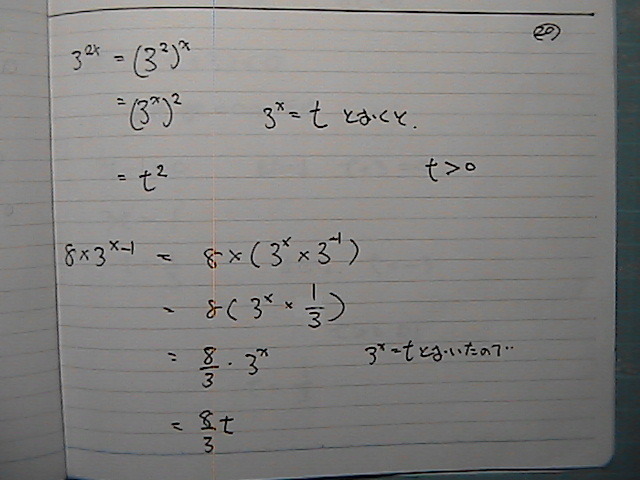 (20)
3^{2x} = (3^2)^x
= (3^x)^2 3^x = t とおくと.
= t^2 t > 0
8 × 3^{x-1} = 8 × (3^x × 3^{-1})
= 8 (3^x × 1/3)
= 8/3 · 3^x 3^x = t とおいたので‥
= 8/3 t